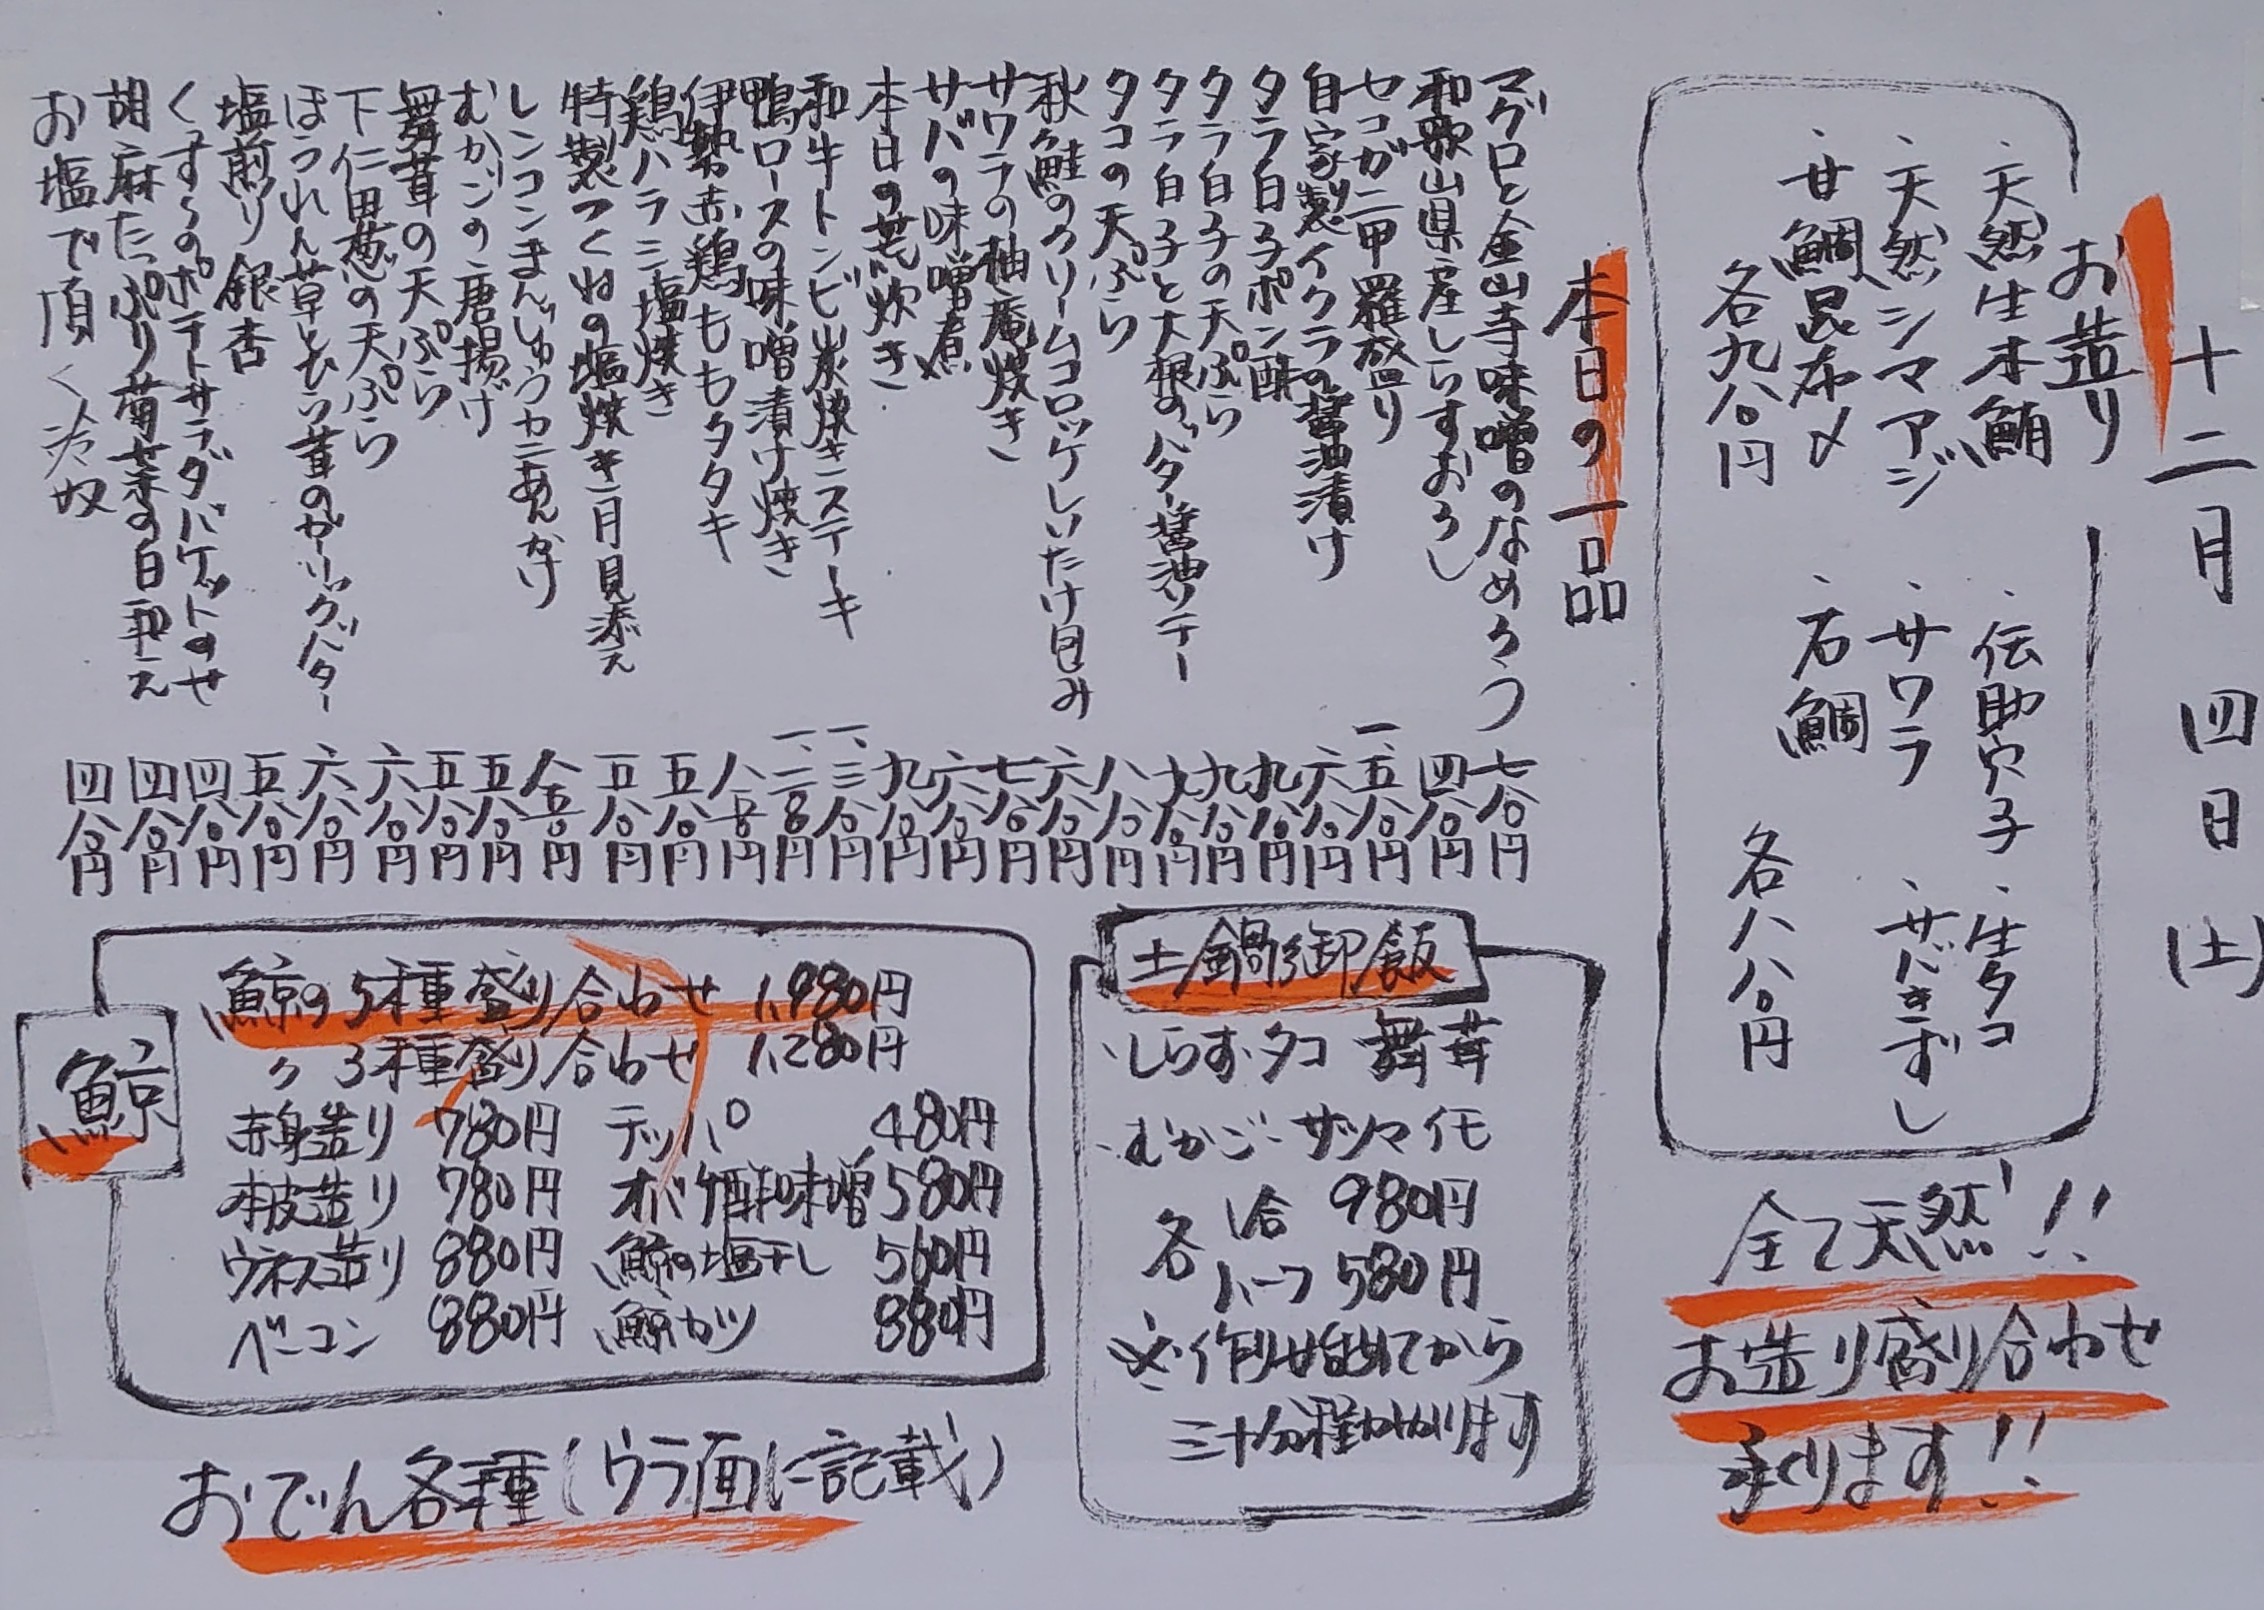 十二月四日(土)
お造り
・天然生本鮪
・天然シマアジ
・甘鯛昆布〆
各九八〇円
・伝助穴子
・生タコ
・サワラ
・サバきずし
・石鯛
各八八〇円
全て天然!!
お造り盛り合わせ
承ります!!
本日の一品
マグロと金山寺味噌のなめろう 七八〇円
和歌山県産しらすおろし 四八〇円
セコガニ甲羅盛り 一、五八〇円
自家製イクラの醤油漬け 六八〇円
タラ白子ポン酢 九八〇円
タラ白子の天ぷら 九八〇円
タラ白子と大根のバター醤油ソテー 九八〇円
タコの天ぷら 八八〇円
秋鮭のクリームコロッケしいたけ包み 六八〇円
サワラの柚庵焼き 七八〇円
サバの味噌煮 六八〇円
本日の荒炊き 九八〇円
和牛トンビ炭焼きステーキ 一、三八〇円
鴨ロースの味噌漬け焼き 一、二八〇円
伊勢赤鶏ももタタキ 八五〇円
鶏ハラミ塩焼き 五八〇円
特製つくねの塩焼き月見添え 五八〇円
レンコンまんじゅうカニあんかけ 八五〇円
むかごの唐揚げ 五八〇円
舞茸の天ぷら 五八〇円
下仁田葱の天ぷら 六八〇円
ほうれん草とひら茸のガーリックバター 六八〇円
塩煎り銀杏 五八〇円
くずしのポテトサラダバケットのせ 四八〇円
胡麻たっぷり菊菜の白和え 四八〇円
お塩で頂く冷奴 四八〇円
土鍋御飯
・しらす・タコ 舞茸
・むかご・サツマイモ
各 1合 980円
ハーフ 580円
※作り始めてから
三十分程かかります
鯨
鯨の5種盛り合わせ 1,980円
〃 3種盛り合わせ 1,280円
赤身造り 780円 テッパ 480円
本皮造り 780円 オバケ酢味噌 580円
ウネス造り 880円 鯨の塩干し 560円
ベーコン 880円 鯨ガツ 880円
おでん各種(ウラ面に記載)